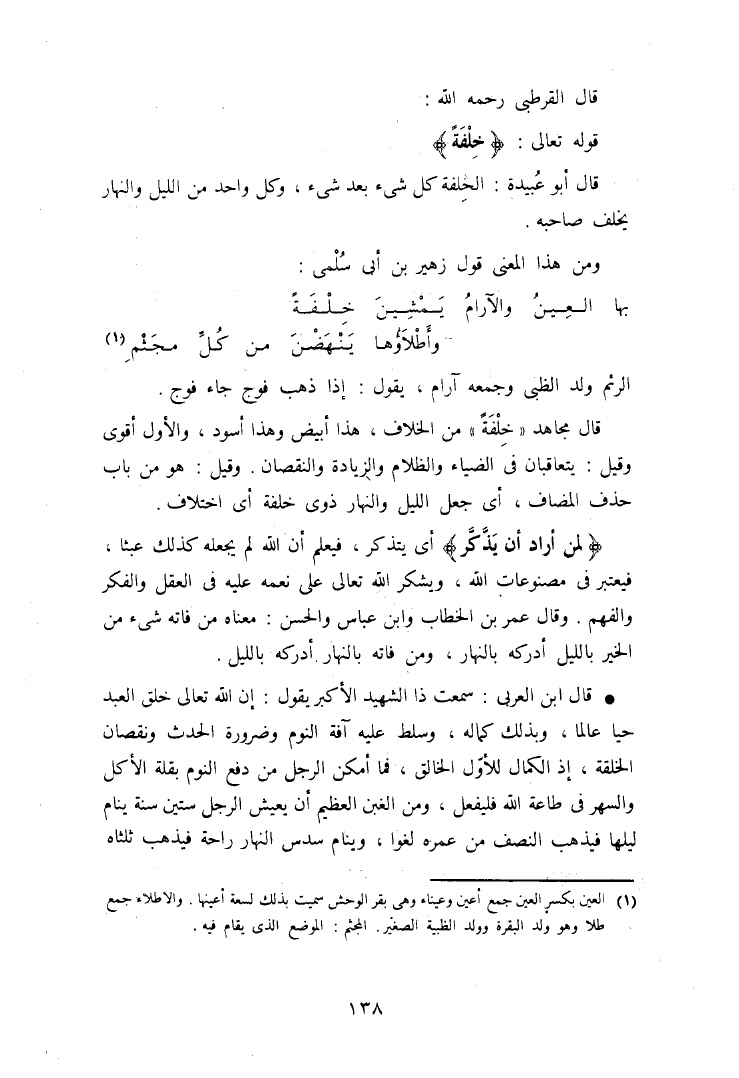 قال القرطبى رحمه الله :
قوله تعالى : ﴿ خِلْفَةً ﴾
قال أبو عُبيدة : الخِلفة كل شىء بعد شىء ، وكل واحد من الليل والنهار
يخلف صاحبه .
ومن هذا المعنى قول زهير بن أبى سُلْمى :
بها العِـيـنُ والآرامُ يَـمْشِـيـنَ خِـلْـفَـةً
وأَطْلَاؤُهـا يَنْهَضْنَ مـن كُـلِّ مـجَـثْـمِ(١)
الرئم ولد الظبى وجمعه آرام ، يقول : إذا ذهب فوج جاء فوج .
قال مجاهد « خِلْفَةً » من الخلاف ، هذا أبيض وهذا أسود ، والأول أقوى
وقيل : يتعاقبان فى الضياء والظلام والزيادة والنقصان . وقيل : هو من باب
حذف المضاف ، أى جعل الليل والنهار ذوى خلفة أى اختلاف .
﴿ لمن أراد أن يَذَّكَّر ﴾ أى يتذكر ، فيعلم أن الله لم يجعله كذلك عبثا ،
فيعتبر فى مصنوعات الله ، ويشكر الله تعالى على نعمه عليه فى العقل والفكر
والفهم . وقال عمر بن الخطاب وابن عباس والحسن : معناه من فاته شىء من
الخير بالليل أدركه بالنهار ، ومن فاته بالنهار أدركه بالليل .
● قال ابن العربى : سمعت ذا الشهيد الأكبر يقول : إن الله تعالى خلق العبد
حيا عالما ، وبذلك كماله ، وسلط عليه آفة النوم وضرورة الحدث ونقصان
الخلقة ، إذ الكمال للأوّل الخالق ، فما أمكن الرجل من دفع النوم بقلة الأكل
والسهر فى طاعة الله فليفعل ، ومن الغبن العظيم أن يعيش الرجل ستين سنة ينام
ليلها فيذهب النصف من عمره لغوا ، وينام سدس النهار راحة فيذهب ثلثاه
(١) العين بكسر العين جمع أعين وعيناء وهى بقر الوحش سميت بذلك لسعة أعينها . والاطلاء جمع
طلا وهو ولد البقرة وولد الظبية الصغير . المجثم : الموضع الذى يقام فيه .
١٣٨